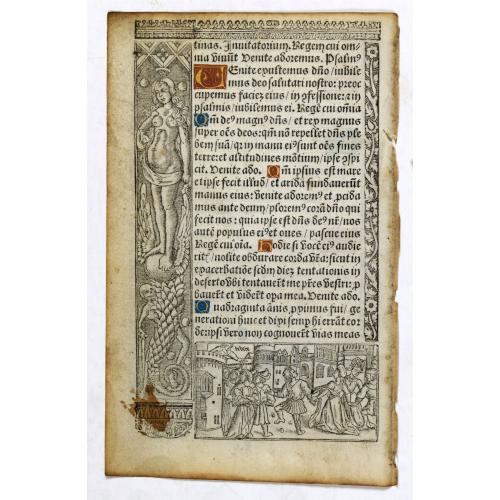 tinas. Inuitatorium. Regem cui om⸗
nia viuũt Venite adoremus. Psalm⁹
VEnite exultemus dño/iubile
mus deo salutari nostro: preoc
cupemus faciẽ eius/in ꝯfessione: ⁊ in
psalmis/iubilemus ei. Regẽ cui oĩa
Qm̃ de⁹ magn⁹ dñs/et rex magnus
super oẽs deos: qm̃ nõ repellet dñs ple
bem suã/qr in manu ei⁹ sunt oẽs fines
terre: et altitudines mõtium/ipse ꝯspi
cit. Venite ado. Qm̃ ipsius est mare
et ipse fecit illud/et aridã fundauerũt
manus eius: venite adorem⁹ et ꝓcida
mus ante deum/plorem⁹ corã dño qui
fecit nos: quia ipse est dñs de⁹ nr̃/nos
autẽ populus ei⁹ et oues/pascue eius
Regẽ cui oĩa. Hodie si vocẽ ei⁹ audie
ritꝭ/nolite obdurare corda vr̃a: sicut in
exacerbatiõe scd̃m diẽ tentationis in
deserto vbi tentauerũt me pr̃es vestri: ꝓ
bauerũt et viderũt opa mea. Venite ado.
Quadraginta ãnis, ꝓximus fui/ge
nerationi huic et dixi semꝑ hi errãt cor
de: ipsi vero non cognouerũt vias meas